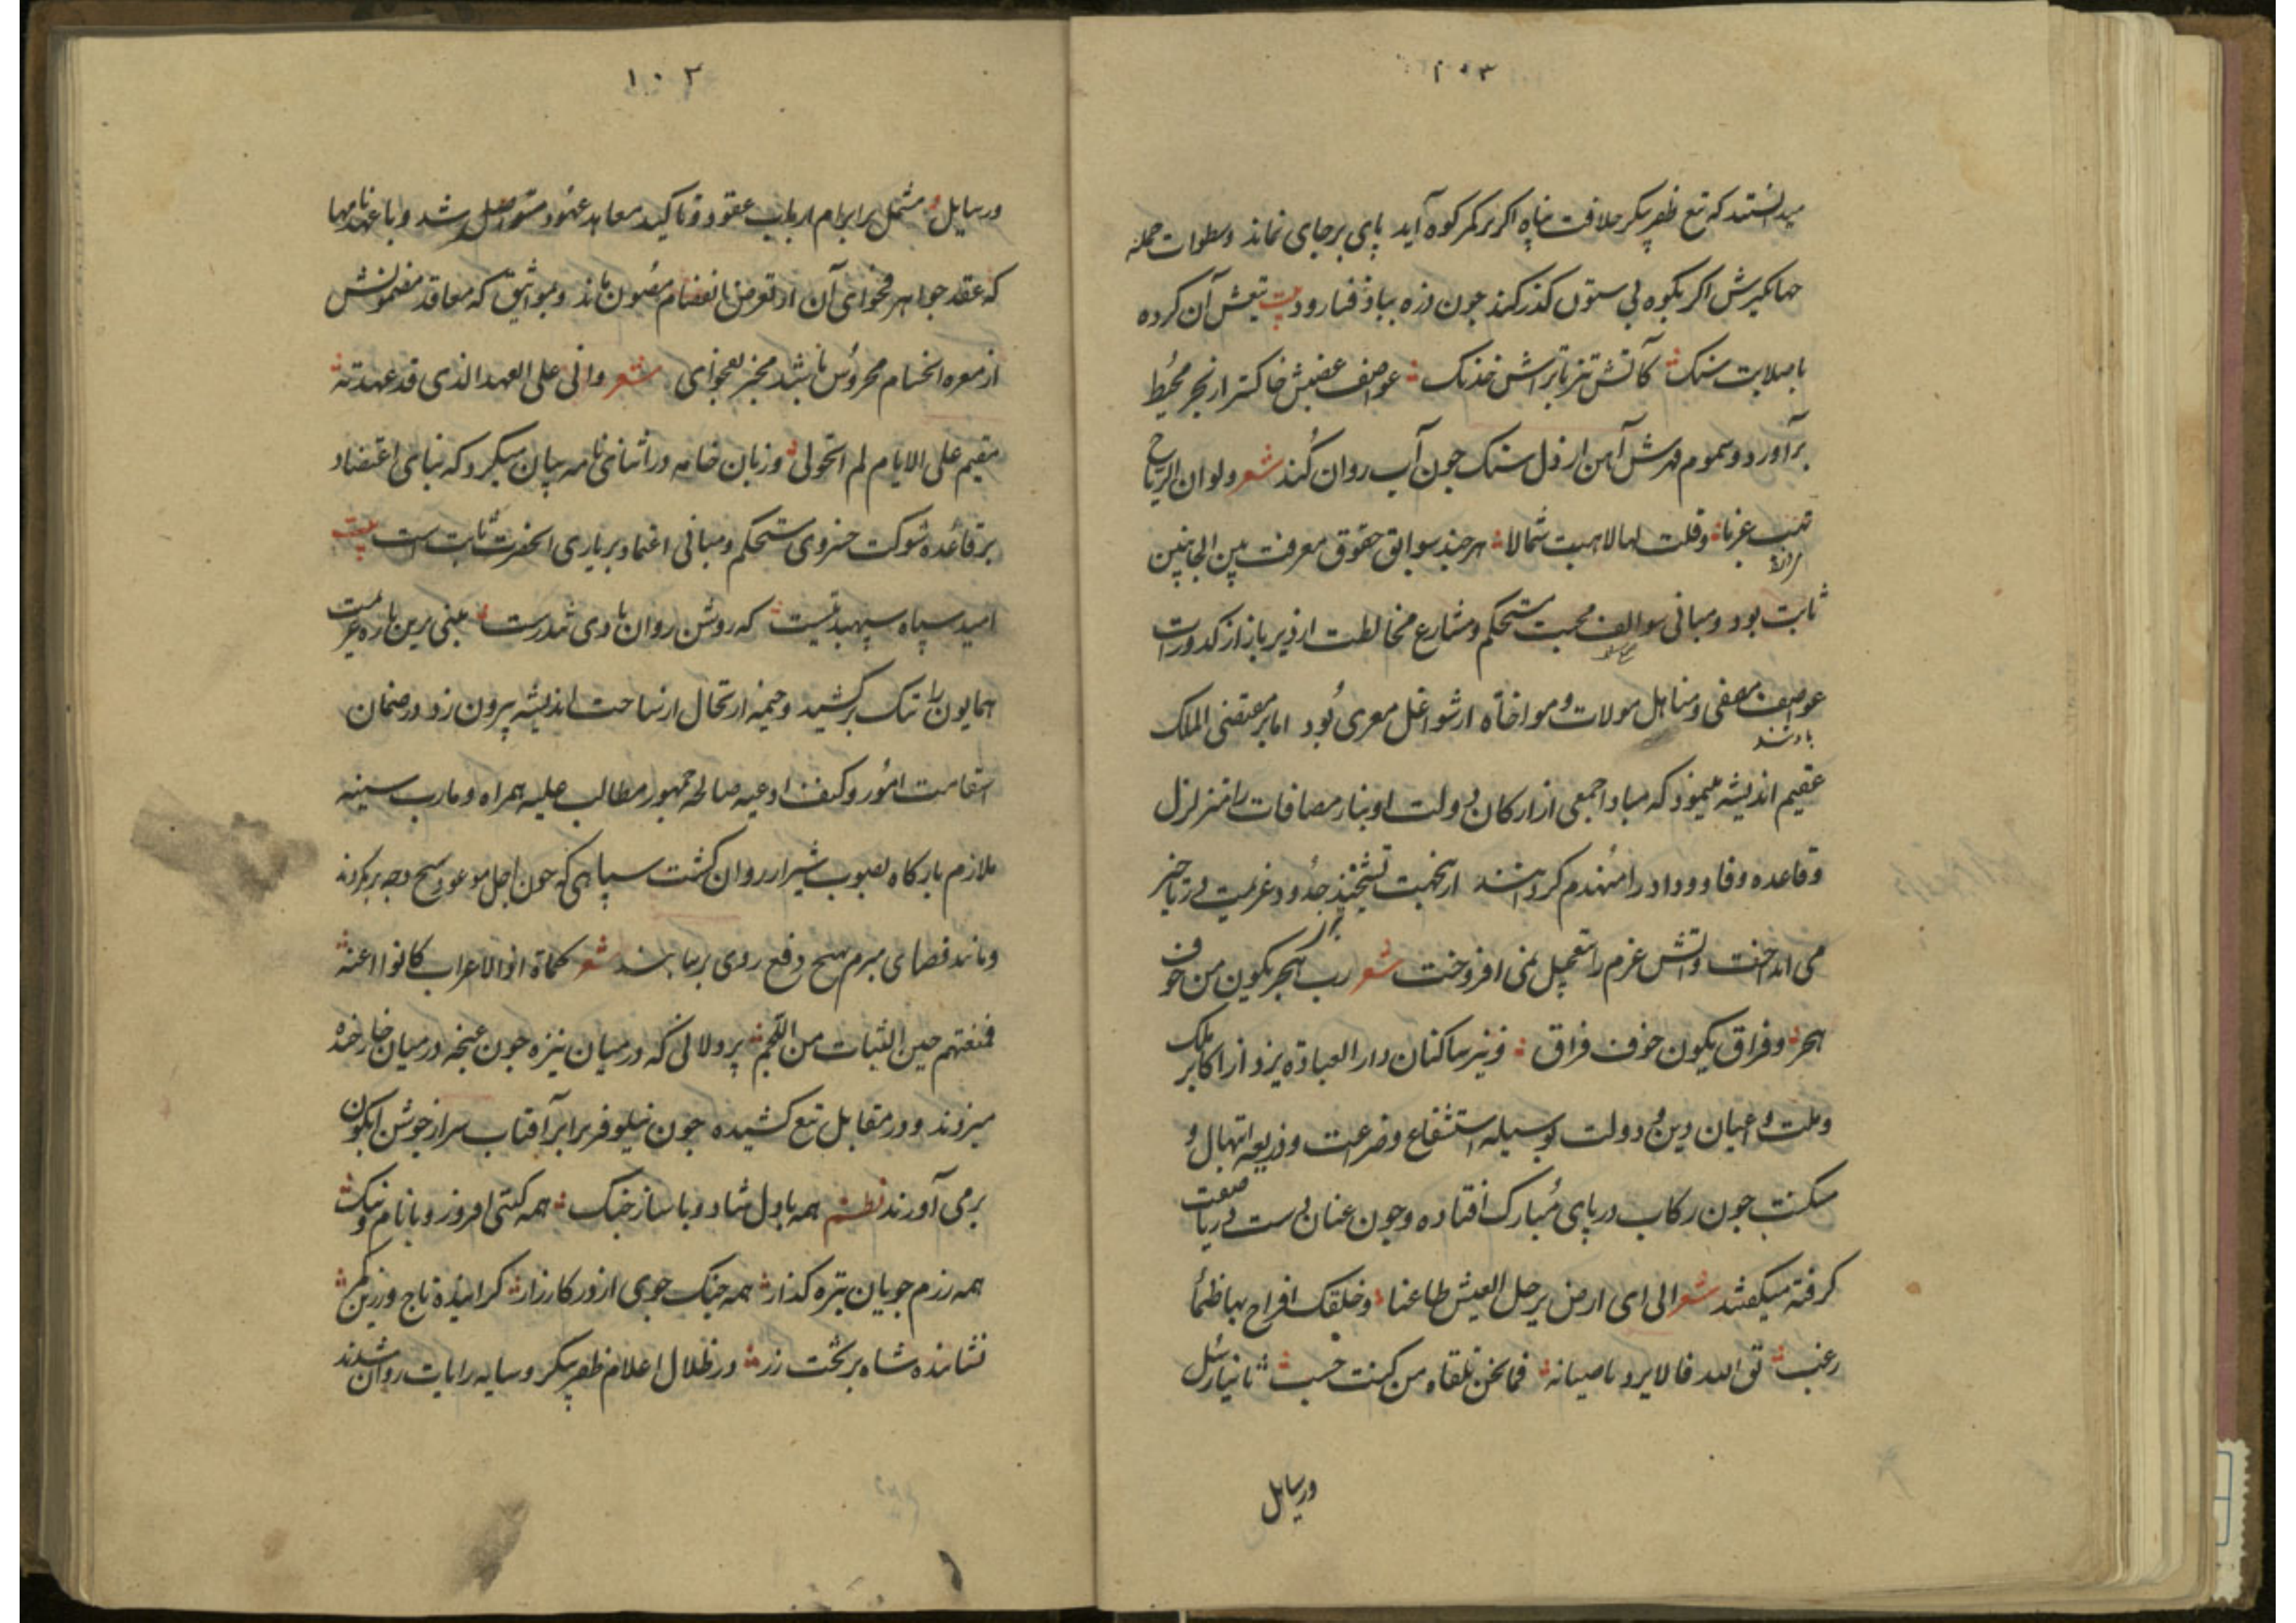 ۱۰۳
میدانستند که تیغ ظفر پیکر خلافت پناه اگر بر کمر کوه آید پای بر جای نماند و سطوات حمله
جهانکیرش اگر بکوه بی ستون گذر کند چون ذره بباد فنا رود بیت تیغش آن کرده
با صلابت سنک کآتش تیز با تراش خدنک عواصف غضبش خاکستر از بحر محیط
برآورد و سموم قهرش آهن از دل سنک چون آب روان کند شعر ولو ان الریاح
تهب غربا وقلت لها لاهبت شمالا هر چند سوابق حقوق معرفت بین الجانبین
ثابت بود و مبانی سوالف محبت مستحکم و مشارع مخالطت از دیرباز از کدورات
عواصف مصفی و مناهل موالات و مواخاة از شواغل معری بود اما بر مقتضی الملک
عقیم اندیشه میمود که مبادا جمعی از ارکان دولت او بنا مصافات را متزلزل
باشند
و قاعده وفا و وداد را منهدم کرده ازینجهت تشحیذ حدود عزیمت در تاخیر
می انداخت و آتش عزم را تعجیل نمی افروخت شعر رب هجر یکون من خوف
هجر و فراق یکون خوف فراق و نیز ساکنان دار العباده یزد از اکابر ملک
و ملت و اعیان دین و دولت بوسیله استشفاع و ضراعت و ذریعه ابتهال و
مسکنت چون رکاب در پای مبارک افتاده و چون عنان دست در پا
کرفته میکفتند شعر الی ای ارض یرحل العیش طاعنا وخلفک افراح بها ظمأ
رغب تق الله فما نحن نلقاه من کنت حسب ثانیا رسل
ورسایل
۱۰۲
ورسایل مشتمل بر ابرام ارباب عقود و تاکید معاهد عهود متواصل شد و با عهد نامها
که عقد جواهر فحوای آن از تعرض انفصام مصون ماند و بمواثیق که معاقد مضمونش
از معره انخسام محروس باشد مخبر بفحوای شعر وانی علی العهد الذی قد عهدته
مقیم علی الایام لم اتحول و زبان خامه در اثنای نامه بیان میکرد که بنای اعتضاد
بر قاعده شوکت خسروی مستحکم و مبانی اعتماد بر یاری انحضرت ثابت است بیت
امید سپاه سپهبد تست که روشن روان بادی و تندرست مبنی برین باره عزیمت
همایون را تنک برکشید و خیمه ارتحال از ساحت اندیشه بیرون زد و در ضمان
استقامت امور و کنف ادعیه صالحه جمهور مطالب علیه همراه و مارب سنیه
ملازم بارکاه بصوب شیراز روان کشت سپاهی که چون اجل موعود بهیچ وجه برنکردند
و مانند قضای مبرم بهیچ دفع روی برنتابند شعر کماة اذا الاعراب کانوا اعنه
فمنعتهم حین الثبات من اللجم پردلانی که در میان نیزه چون غنچه در میان خار خنده
میزدند و در مقابل تیغ کشیده چون نیلوفر برابر آفتاب سر از جوشن آبکون
بر می آورند نظم همه با دل شاد و با ساز جنک همه کیتی افروز و با نام و ننک
همه رزم جویان نیزه گذار همه جنک جوی از در کارزار کراینده تاج و زرین کمر
نشاننده شاه بر تخت زر در ظلال اعلام ظفر پیکر و سایه رایات روان شدند